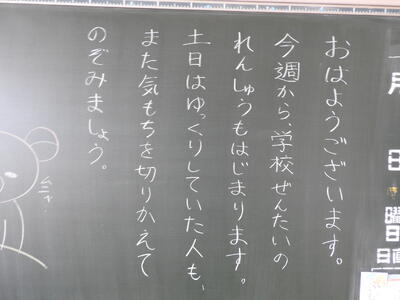 おはようございます。
今週から、学校ぜんたいの
れんしゅうもはじまります。
土日はゆっくりしていた人も、
また気もちを切りかえて
のぞみましょう。
月
日
曜日
日直